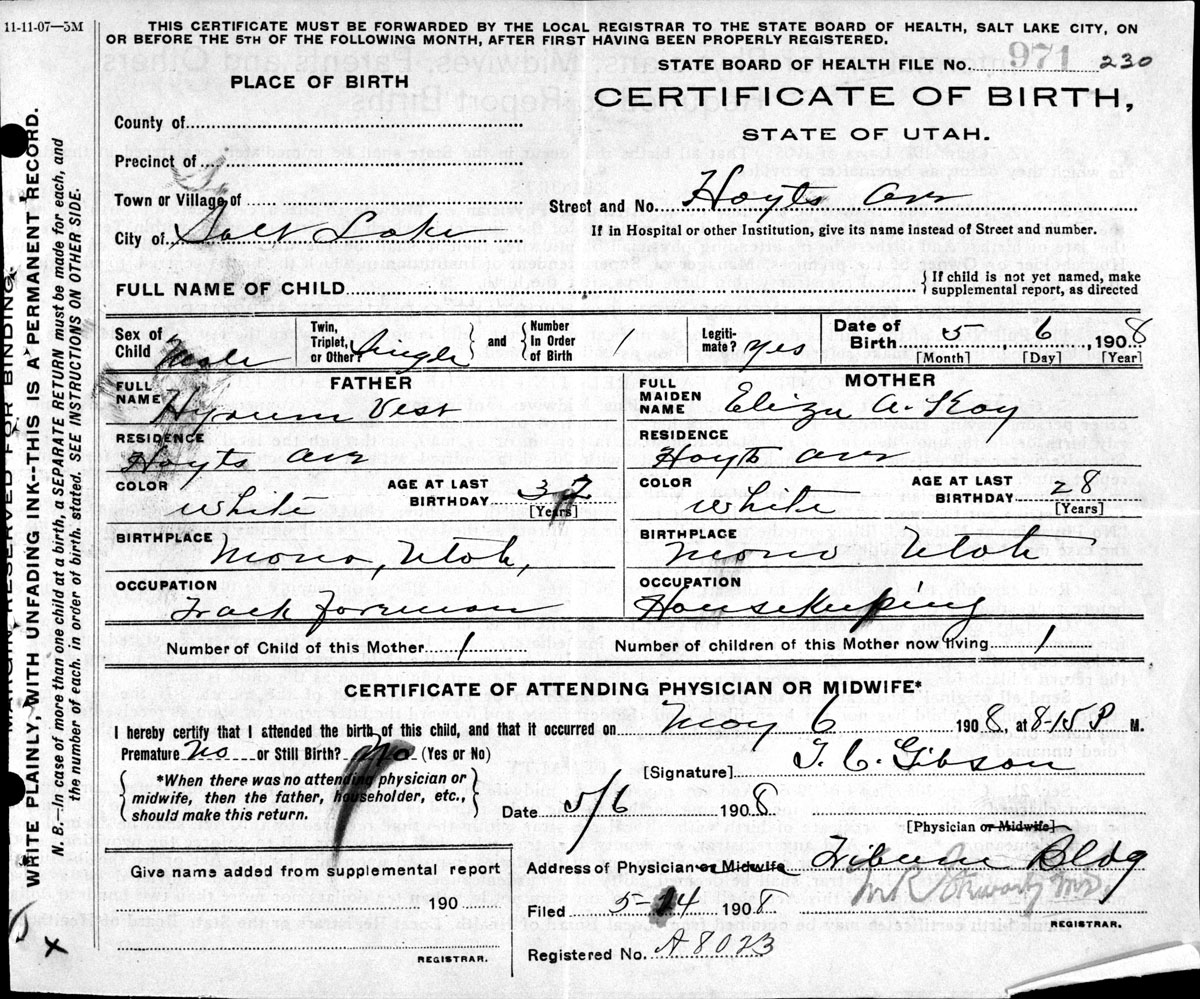 11-11-07—5M
THIS CERTIFICATE MUST BE FORWARDED BY THE LOCAL REGISTRAR TO THE STATE BOARD OF HEALTH, SALT LAKE CITY, ON
OR BEFORE THE 5TH OF THE FOLLOWING MONTH, AFTER FIRST HAVING BEEN PROPERLY REGISTERED.
STATE BOARD OF HEALTH FILE No. 971 230
PLACE OF BIRTH
CERTIFICATE OF BIRTH,
STATE OF UTAH.
County of
Precinct of
Town or Village of
Street and No. Hoyts
City of Salt Lake
If in Hospital or other Institution, give its name instead of Street and number.
FULL NAME OF CHILD
{If child is not yet named, make
supplemental report, as directed
Sex of Child Male
Twin, Triplet, or Other Single } and { Number In Order of Birth 1
Legitimate? yes
Date of Birth 5 6 1908
[Month] [Day] [Year]
FATHER
FULL NAME Hyrum Vest
RESIDENCE Hoyts
COLOR White
AGE AT LAST BIRTHDAY 32
[Years]
BIRTHPLACE Mona, Utah,
OCCUPATION Track foreman
MOTHER
FULL MAIDEN NAME Eliza A. Kay
RESIDENCE Hoyts
COLOR White
AGE AT LAST BIRTHDAY 28
[Years]
BIRTHPLACE Mona Utah
OCCUPATION Housekeeping
Number of Child of this Mother 1
Number of children of this Mother now living 1
CERTIFICATE OF ATTENDING PHYSICIAN OR MIDWIFE*
I hereby certify that I attended the birth of this child, and that it occurred on May 6 1908, at 8-15 P M.
Premature No or Still Birth? No (Yes or No)
[Signature] T. C. Gibson
{*When there was no attending physician or
midwife, then the father, householder, etc.,
should make this return.}
Date 5/6 1908
[Physician or Midwife]
Give name added from supplemental report
190
REGISTRAR.
Address of Physician or Midwife Tribune Bldg
Filed 5-14 1908
REGISTRAR.
Registered No. A8023
MARGIN RESERVED FOR BINDING.
WRITE PLAINLY, WITH UNFADING INK--THIS IS A PERMANENT RECORD.
N. B.—In case of more than one child at a birth, a SEPARATE RETURN must be made for each, and
the number of each, in order of birth, stated. SEE INSTRUCTIONS ON OTHER SIDE.
X